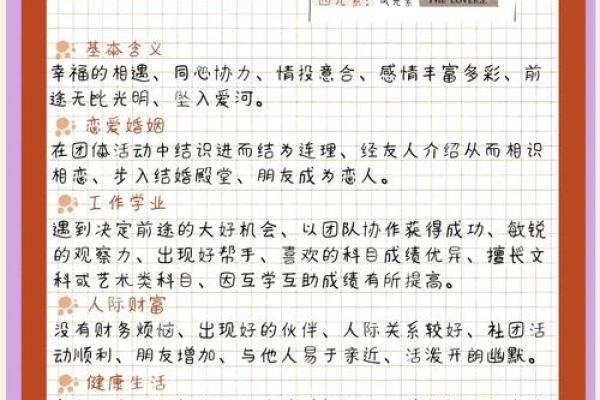 四元素：风元素
THE LOVERS.
基本含义
幸福的相遇、同心协力、情投意合、感情丰富多彩、前
途无比光明、坠入爱河。
恋爱婚姻
在团体活动中结识进而结为连理、经友人介绍从而相识
相恋、步入结婚殿堂、朋友成为恋人。
工作学业
遇到决定前途的大好机会、以团队协作获得成功、敏锐
的观察力、出现好帮手、喜欢的科目成绩优异、擅长文
科或艺术类科目、因互学互助成绩有所提高。
人际财富
没有财务烦恼、出现好的伙伴、人际关系较好、社团活
动顺利、朋友增加、与他人易于亲近、活泼开朗幽默。
健康生活